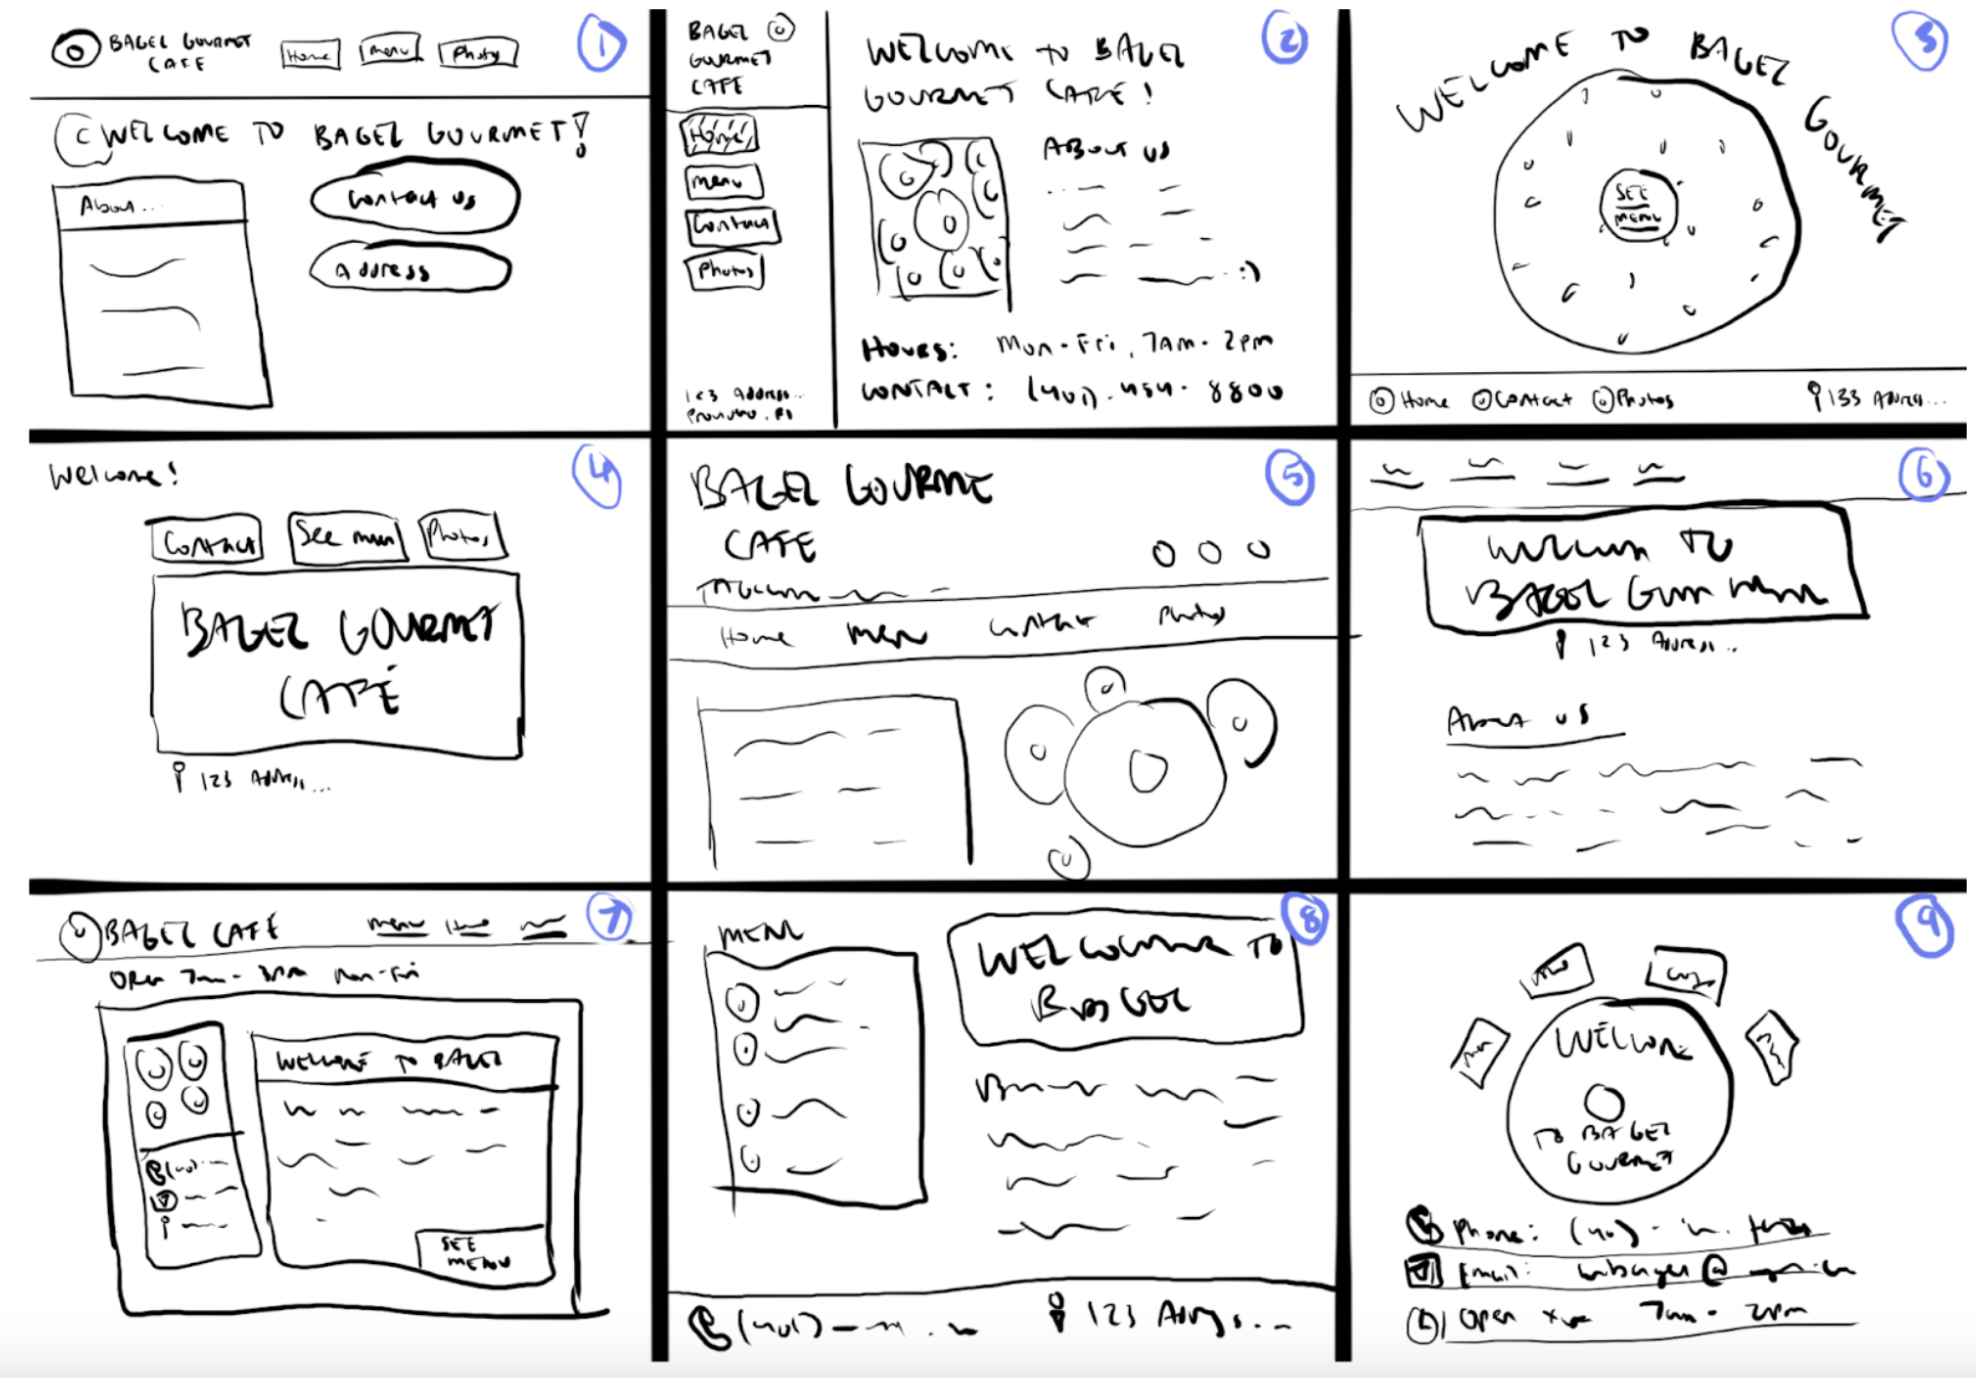 1
BAGEL GOURMET
CAFE
Home
Menu
Photos
WELCOME TO BAGEL GOURMET!
About...
Contact us
Address
2
BAGEL
GOURMET
CAFE
Home
Menu
Contact
Photos
123 Address...
Providence, RI
WELCOME TO BAGEL
GOURMET CAFE!
ABOUT US
:)
HOURS: Mon-Fri, 7AM-2PM
CONTACT: (401)-454-8800
3
WELCOME TO BAGEL GOURMET
SEE
MENU
Home
Contact
Photos
133 Address...
4
Welcome!
Contact
See menu
Photos
BAGEL GOURMET
CAFÉ
123 Address...
5
BAGEL GOURME
CAFE
Home
Menu
Contact
Photos
6
WELCOME TO
123 Address...
About us
7
BAGEL CAFÉ
menu
Open 7am- Mon-Fri
WELCOME TO BAGEL
SEE
MENU
8
MENU
WELCOME TO
BAGEL
(401)
123 Address...
9
WELCOME
TO BAGEL
GOURMET
Phone: (401)-
Email: @
Open 7am- 2pm